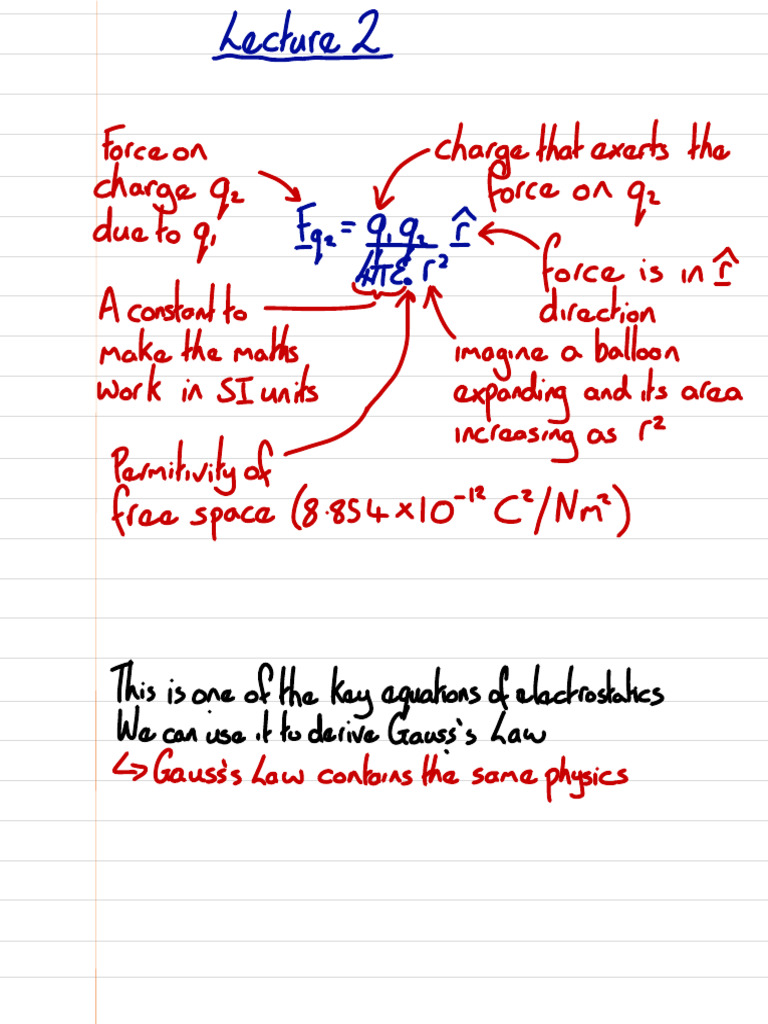 Lecture 2
Force on
charge q₂
due to q₁
charge that exerts the
force on q₂
F_q₂ = q₁q₂ / 4πε₀r² r̂
force is in r̂
direction
A constant to
make the maths
work in SI units
imagine a balloon
expanding and its area
increasing as r²
Permitivity of
free space (8.854×10⁻¹² C²/Nm²)
This is one of the key equations of electrostatics
We can use it to derive Gauss's Law
↳ Gauss's Law contains the same physics